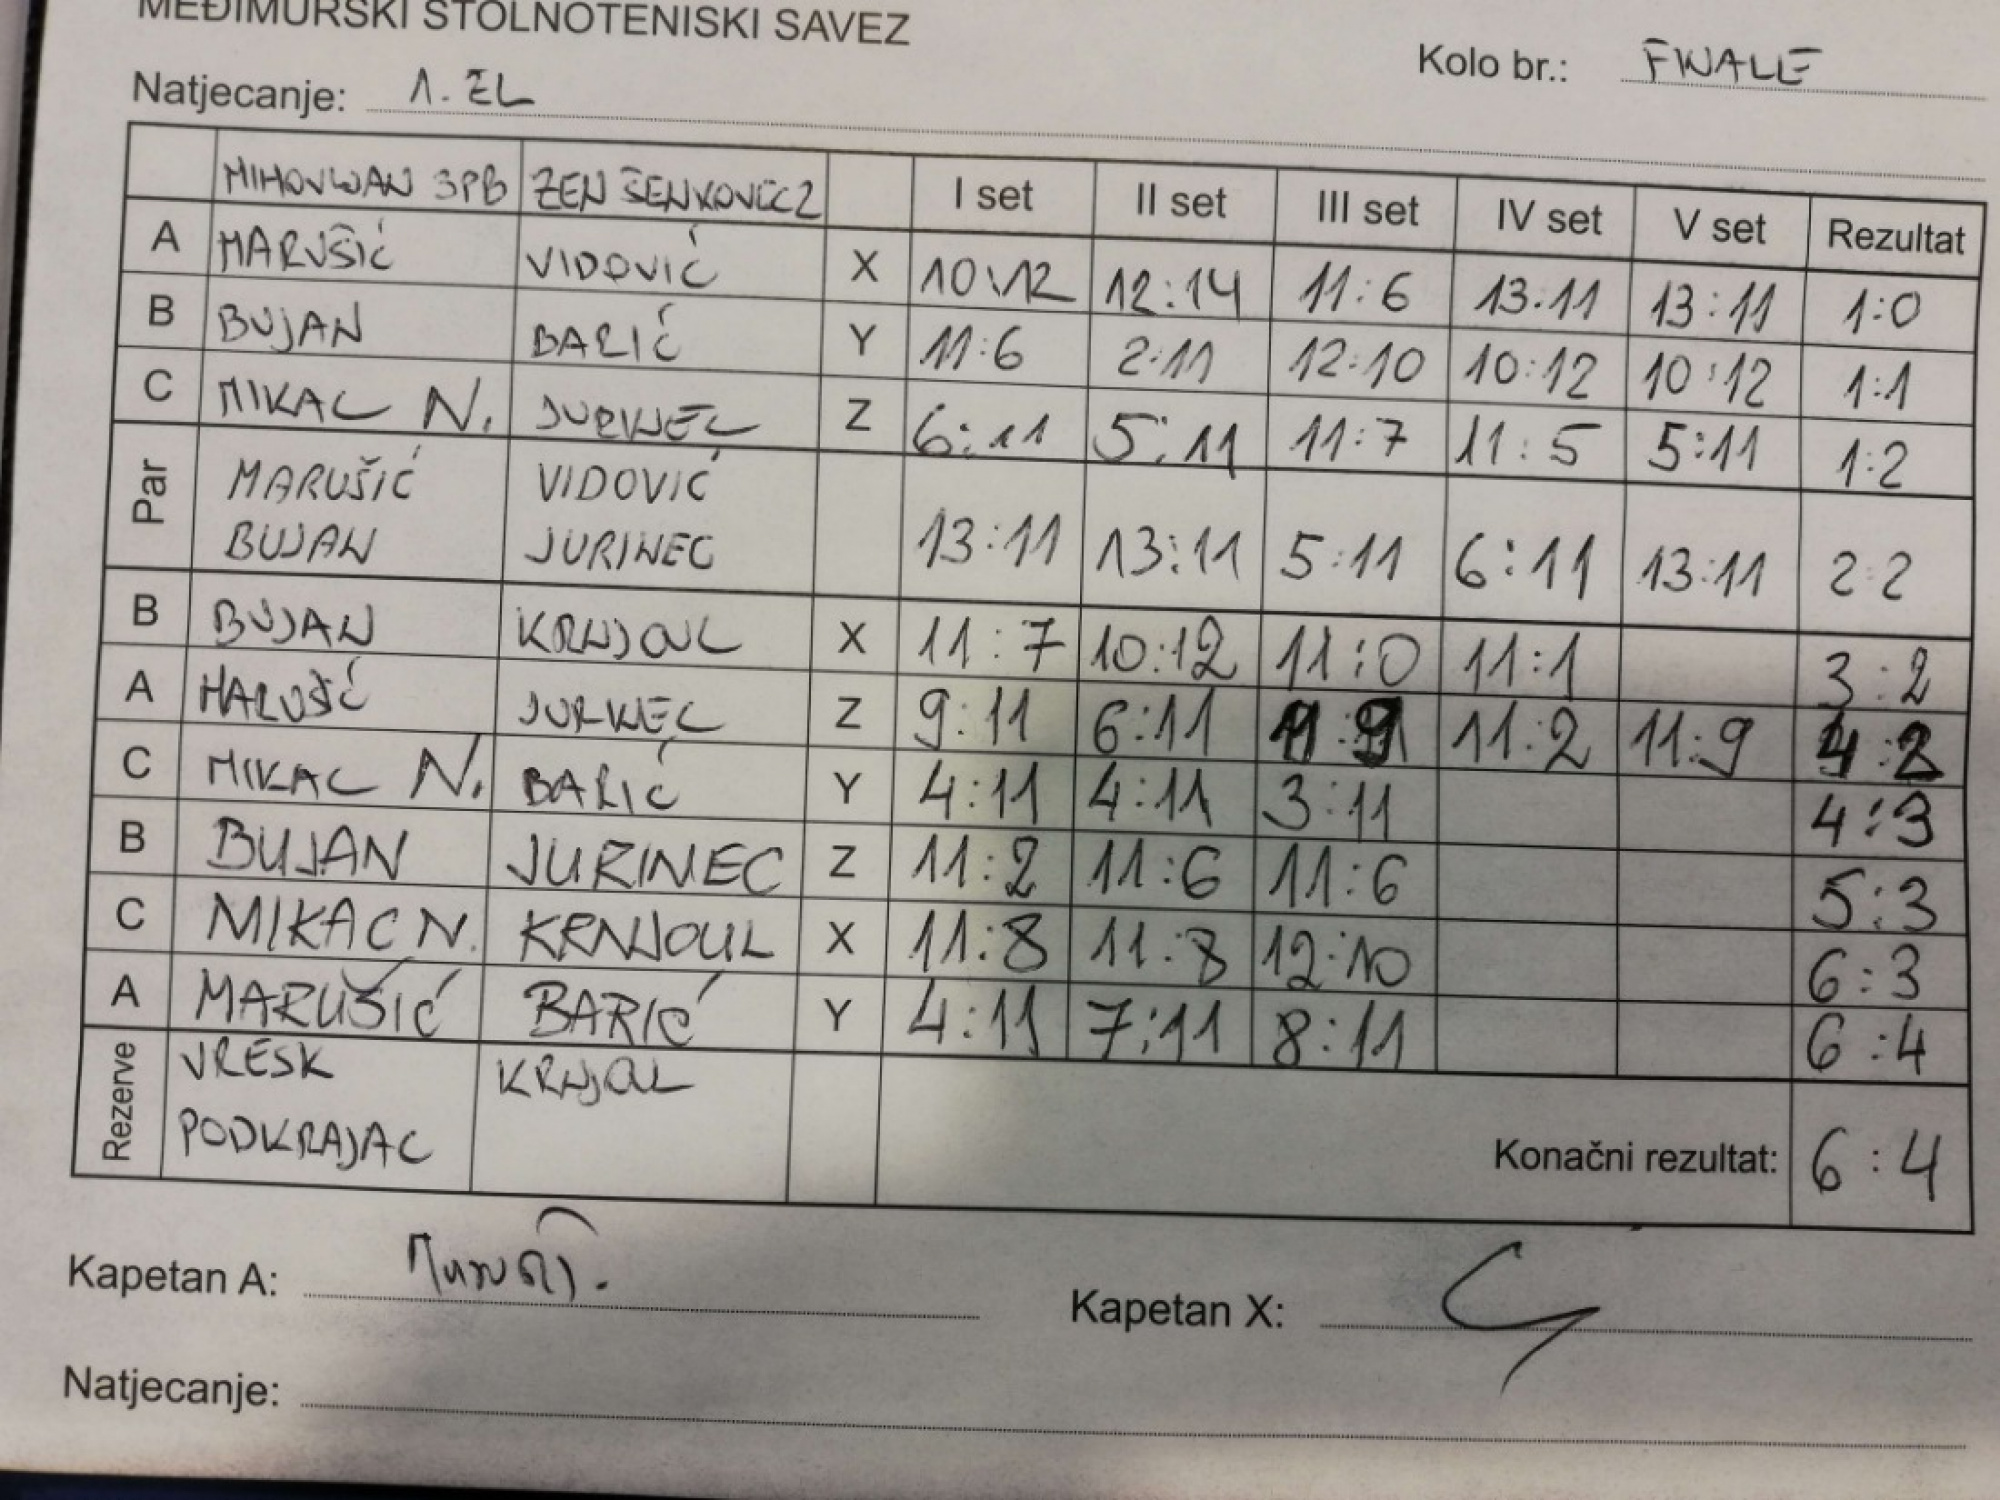 MEĐIMURSKI STOLNOTENISKI SAVEZ
Kolo br.: FINALE
Natjecanje: 1. ŽL
MIHOVLJAN 3PB ŽEN ŠENKOVEC 2 I set II set III set IV set V set Rezultat
A MARUŠIĆ VIDOVIĆ X 10:12 12:14 11:6 13:11 13:11 1:0
B BUJAN BARIĆ Y 11:6 2:11 12:10 10:12 10:12 1:1
C MIKAC N. JURINEC Z 6:11 5:11 11:7 11:5 5:11 1:2
Par MARUŠIĆ VIDOVIĆ
BUJAN JURINEC 13:11 13:11 5:11 6:11 13:11 2:2
B BUJAN KRNJOUL X 11:7 10:12 11:0 11:1 3:2
A MARUŠIĆ JURINEC Z 9:11 6:11 11:9 11:2 11:9 4:2
C MIKAC N. BARIĆ Y 4:11 4:11 3:11 4:3
B BUJAN JURINEC Z 11:2 11:6 11:6 5:3
C MIKAC N. KRNJOUL X 11:8 11:8 12:10 6:3
A MARUŠIĆ BARIĆ Y 4:11 7:11 8:11 6:4
Rezerve VRESK KRNJOUL
PODKRAJAC
Konačni rezultat: 6:4
Kapetan A:
Kapetan X:
Natjecanje: